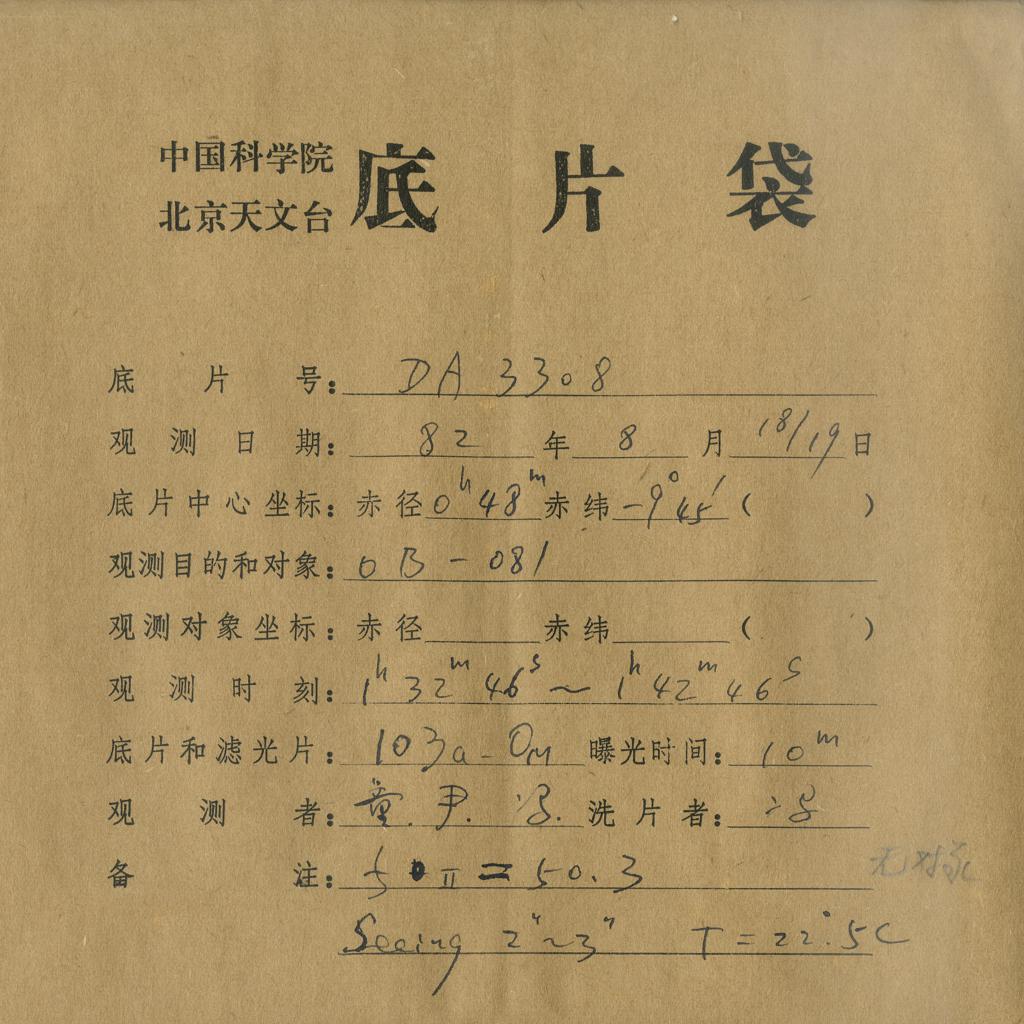 中国科学院
北京天文台
底片袋
底片号: DA 3308
观测日期: 82 年 8 月 18/19 日
底片中心坐标: 赤径 0h 48m 赤纬 -9° 45′ ( )
观测目的和对象: OB - 081
观测对象坐标: 赤径 赤纬 ( )
观测时刻: 1h 32m 46s ~ 1h 42m 46s
底片和滤光片: 103a-O 曝光时间: 10m
观测者: 童. 尹. 冯. 洗片者: 冯
备注: = 50.3
无对象
Seeing 2″~3″ T = 22°.5C